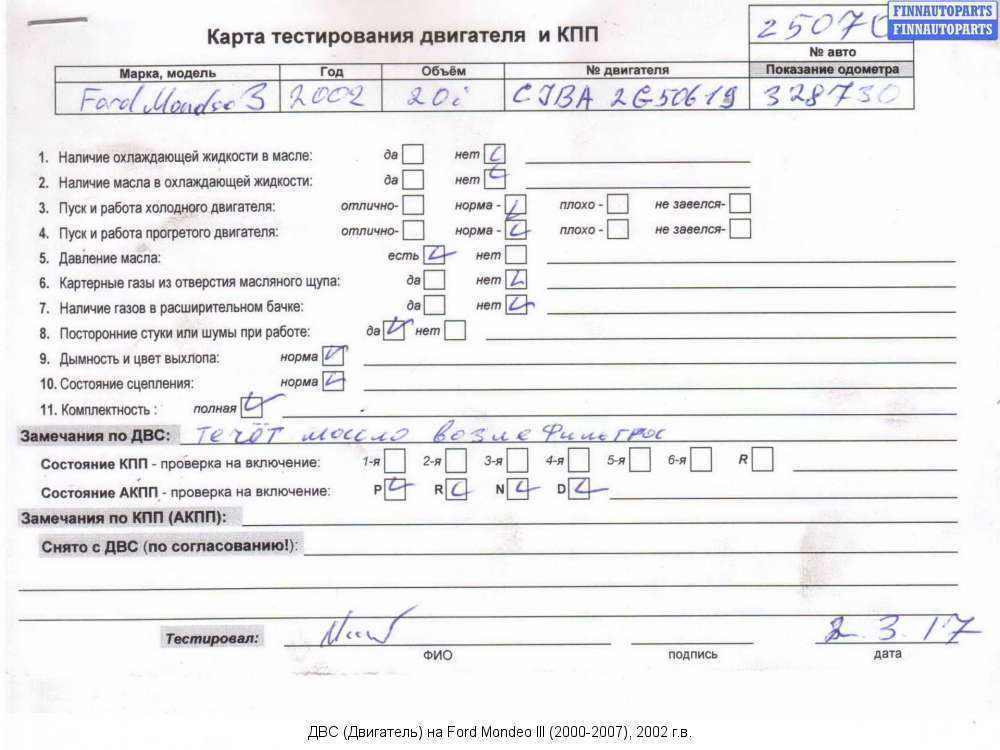 FINNAUTOPARTS
FINNAUTOPARTS
Карта тестирования двигателя и КПП
№ авто
Марка, модель Год Объём № двигателя Показание одометра
Ford Mondeo 3 2002 20i CJBA 2G50619 328730
1. Наличие охлаждающей жидкости в масле: да нет
2. Наличие масла в охлаждающей жидкости: да нет
3. Пуск и работа холодного двигателя: отлично- норма - плохо - не завелся-
4. Пуск и работа прогретого двигателя: отлично- норма - плохо - не завелся-
5. Давление масла: есть нет
6. Картерные газы из отверстия масляного щупа: да нет
7. Наличие газов в расширительном бачке: да нет
8. Посторонние стуки или шумы при работе: да нет
9. Дымность и цвет выхлопа: норма
10. Состояние сцепления: норма
11. Комплектность : полная
Замечания по ДВС: Течёт масло возле фильтра
Состояние КПП - проверка на включение: 1-я 2-я 3-я 4-я 5-я 6-я R
Состояние АКПП - проверка на включение: P R N D
Замечания по КПП (АКПП):
Снято с ДВС (по согласованию!):
Тестировал: 2.3.17
ФИО подпись дата
ДВС (Двигатель) на Ford Mondeo III (2000-2007), 2002 г.в.